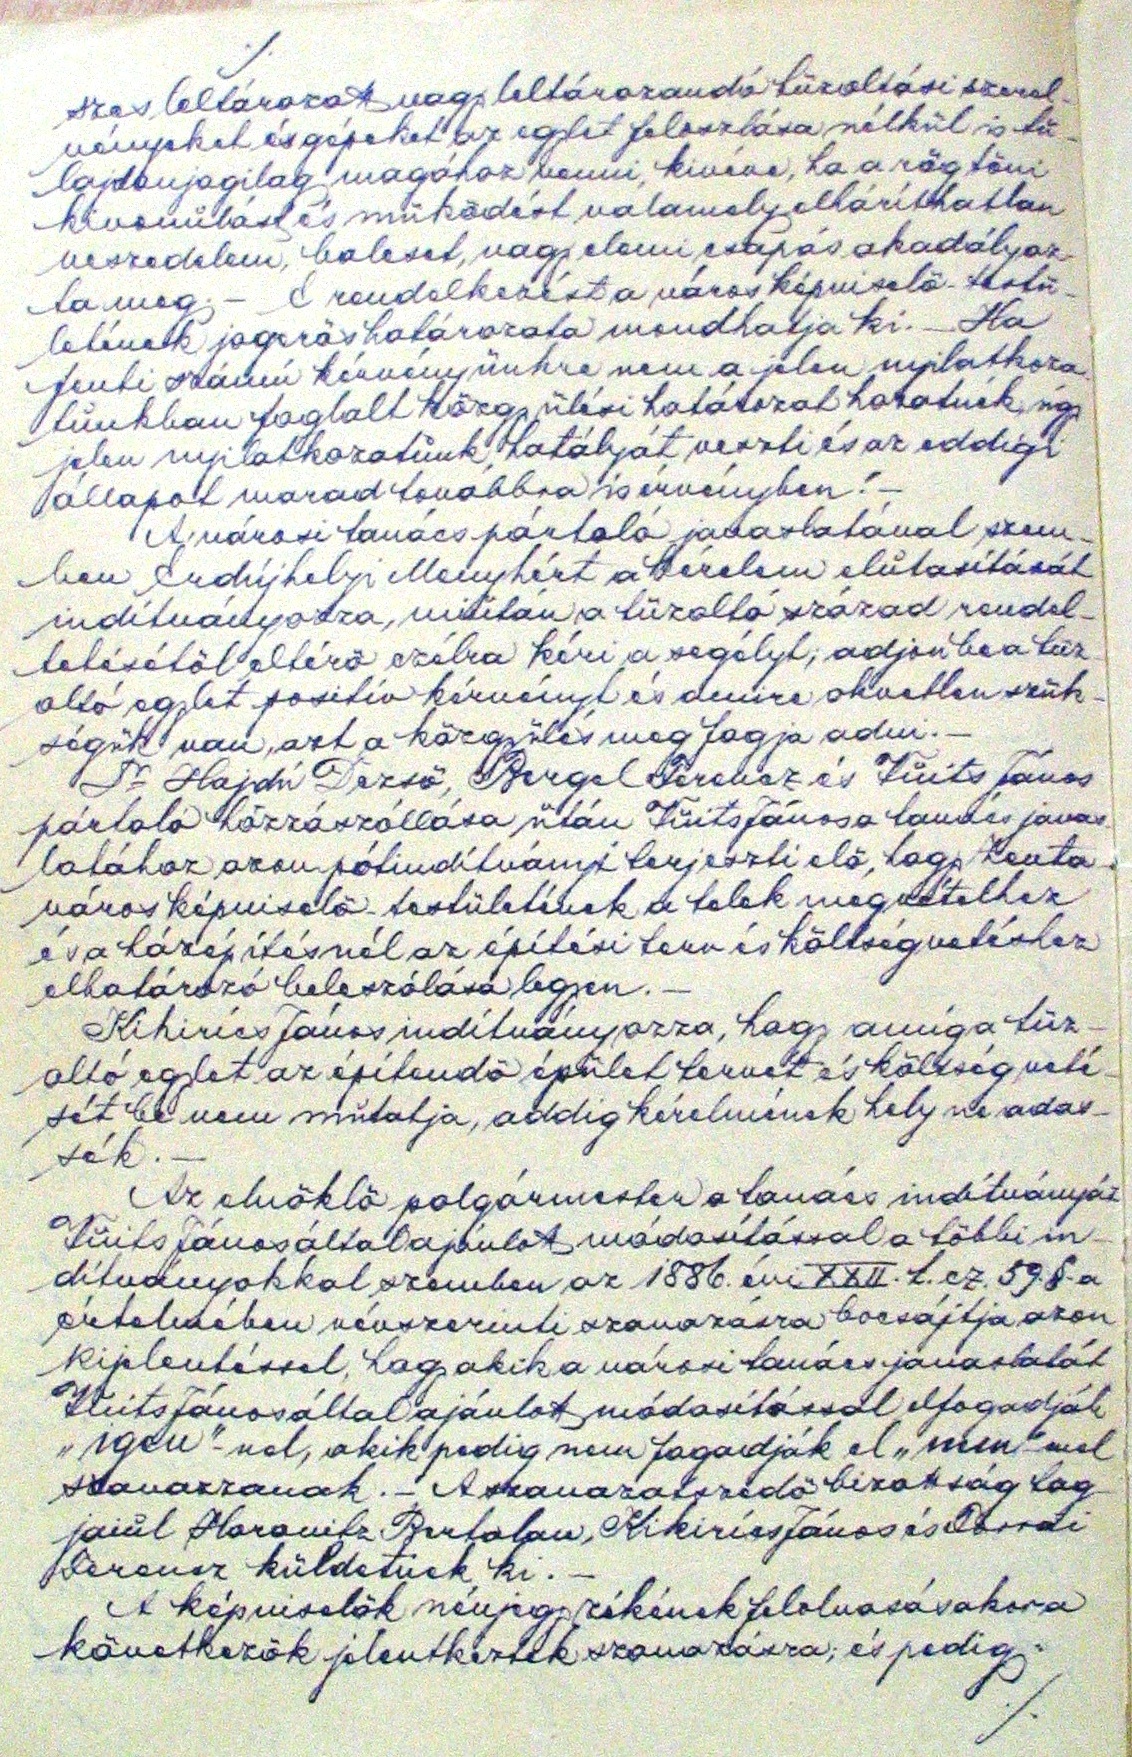 ./.
szes leltározott vagy leltározandó tűzoltási szerel-
vényeket és gépeket az egylet feloszlása nélkül is tu-
lajdonjogilag magához venni, kivéve, ha a rögtöni
kivonulást és működést valamely elháríthatlan
veszedelem, baleset, vagy elemi csapás akadályoz-
ta meg. – E rendelkezést a város képviselő-testü-
letének jogerős határozata mondhatja ki. – Ha
fenti számú kérvényünkre nem a jelen nyilatkoza-
tunkban foglalt közgyülési határozat hozatnék, úgy
jelen nyilatkozatunk hatályát veszti és az eddigi
állapot marad továbbra is érvényben! –
A városi tanács pártoló javaslatával szem-
ben Erdujhelyi Menyhért a kérelem elutasítását
indítványozza, miután a tűzoltó század rendel-
tetésétől eltérő czélra kéri a segélyt; adjon be a tűz-
oltó egylet positiv kérvényt és amire okvetlen szük-
ségük van, azt a közgyülés meg fogja adni. –
Dr Hajdú Dezső, Bergel Ferencz és Vuits János
pártoló hozzászóllása után Vuits János a tanács javas-
latához azon pótindítványt terjeszti elő, hogy Zenta
város képviselő-testületének a telek megvételhez
és a házépítésnél az építési terv és költségvetéshez
elhatározó beleszólása legyen. –
Kihirics János indítványozza, hogy amíg a tűz-
oltó egylet az építendő épület tervét és költségveté-
sét be nem mutatja, addig kérelmének hely ne adas-
sék. –
Az elnöklő polgármester a tanács indítványát
Vuits János által ajánlott módosítással a többi in-
dítványokkal szemben az 1886. évi XXII. t. cz. 59. §-a
értelmében névszerinti szavazásra bocsájtja azon
kijelentéssel, hogy akik a városi tanács javaslatát
Vuits János által ajánlott módosítással elfogadják
„igen"-nel, akik pedig nem fogadják el „nem"-mel
szavazzanak. – A szavazatszedő bizottság tag-
jaiul Horovitz Bertalan, Kikirics János és
Ferencz küldetnek ki. –
A képviselők névjegyzékének felolvasásakor a
következők jelentkeztek szavazásra; és pedig:
./.